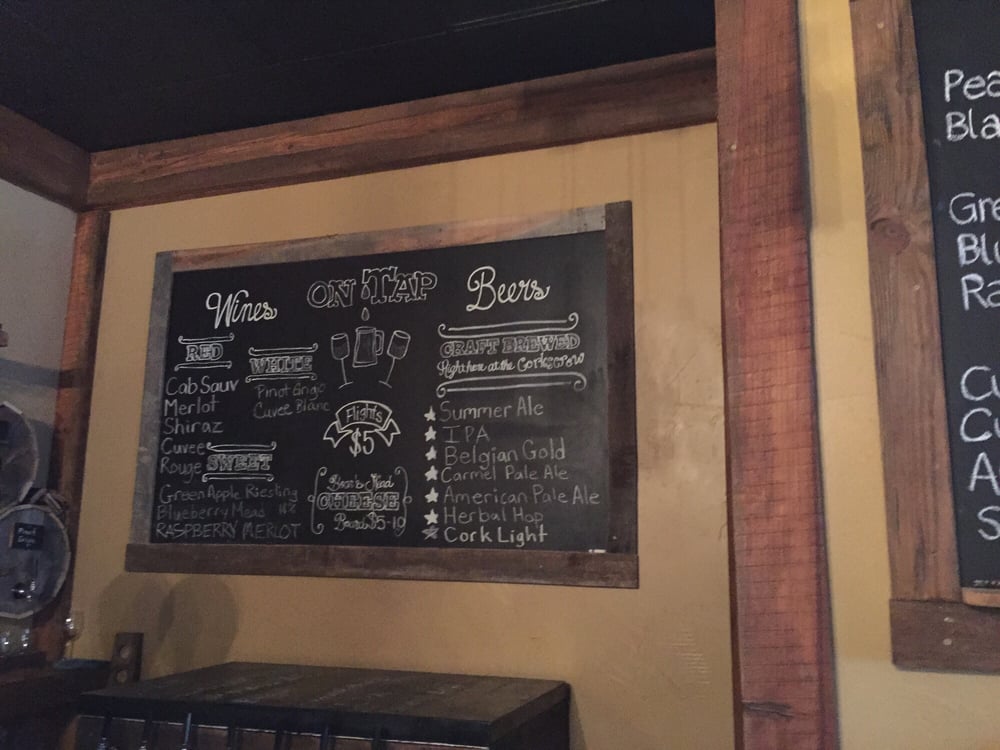 ON TAP
Wines
RED
Cab Sauv
Merlot
Shiraz
Cuvee
Rouge
WHITE
Pinot Grigo
Cuvee Blanc
SWEET
Green Apple Riesling
Blueberry Mead
RASPBERRY MERLOT
Flights
$5
Boar's Head
CHEESE
Board $5-10
Beers
CRAFT BREWED
Right here at the Corkscrow
Summer Ale
IPA
Belgian Gold
Carmel Pale Ale
American Pale Ale
Herbal Hop
Cork Light
Pea
Bla
Gre
Blu
Ra
Cu
Cu
A
S